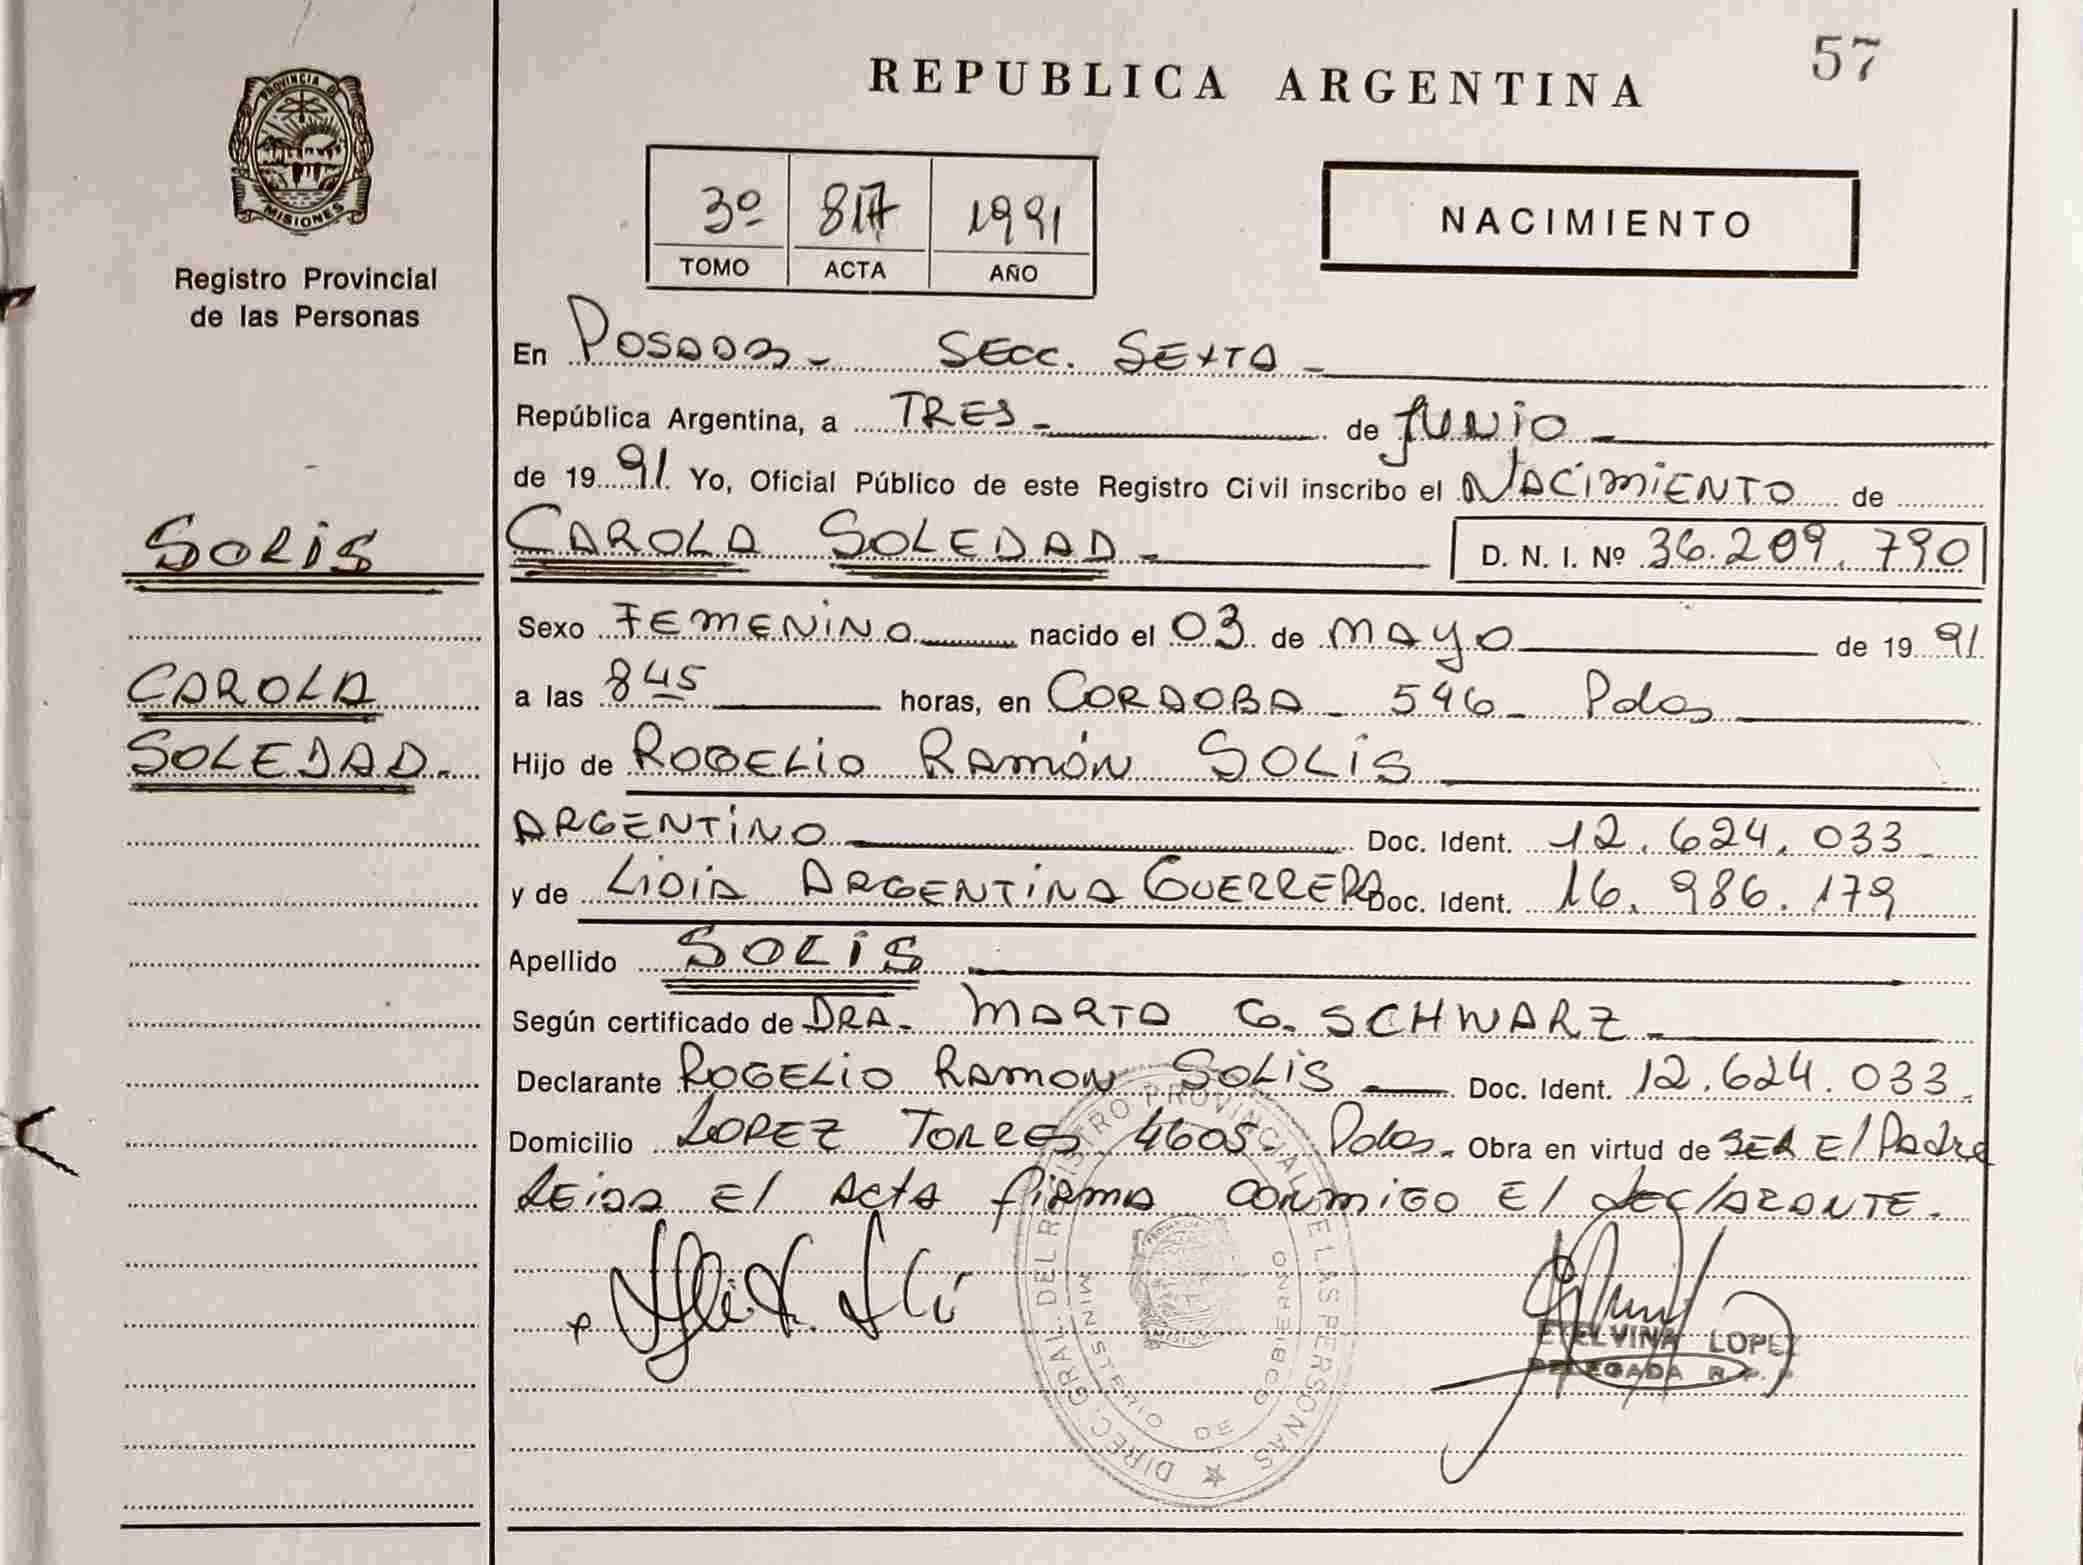 57
REPUBLICA ARGENTINA
PROVINCIA DE
MISIONES
Registro Provincial
de las Personas
3º 817 1991
TOMO ACTA AÑO
NACIMIENTO
En Posadas - SECC. SEXTA -
República Argentina, a TRES - de Junio -
de 1991 Yo, Oficial Público de este Registro Civil inscribo el NACIMIENTO de
SOLIS
CAROLA SOLEDAD - D. N. I. Nº 36.209.790
Sexo FEMENINO nacido el 03 de MAYO de 1991
CAROLA
SOLEDAD -
a las 845 horas, en CORDOBA - 546 - Pdas
Hijo de ROGELIO RAMÓN SOLIS
ARGENTINO Doc. Ident. 12.624.033
y de LIDIA ARGENTINA GUERRERO Doc. Ident. 16.986.179
Apellido SOLIS
Según certificado de DRA. MARTA G. SCHWARZ -
Declarante ROGELIO RAMON SOLIS Doc. Ident. 12.624.033
Domicilio LOPEZ TORRES 4605 Pdas. Obra en virtud de SER El Padre
Leida El Acta firma conmigo El declarante.
DIREC. GRAL. DEL REGISTRO PROVINCIAL DE LAS PERSONAS
MINISTERIO DE GOBIERNO
ETELVINA LOPEZ
DELEGADA R. P.